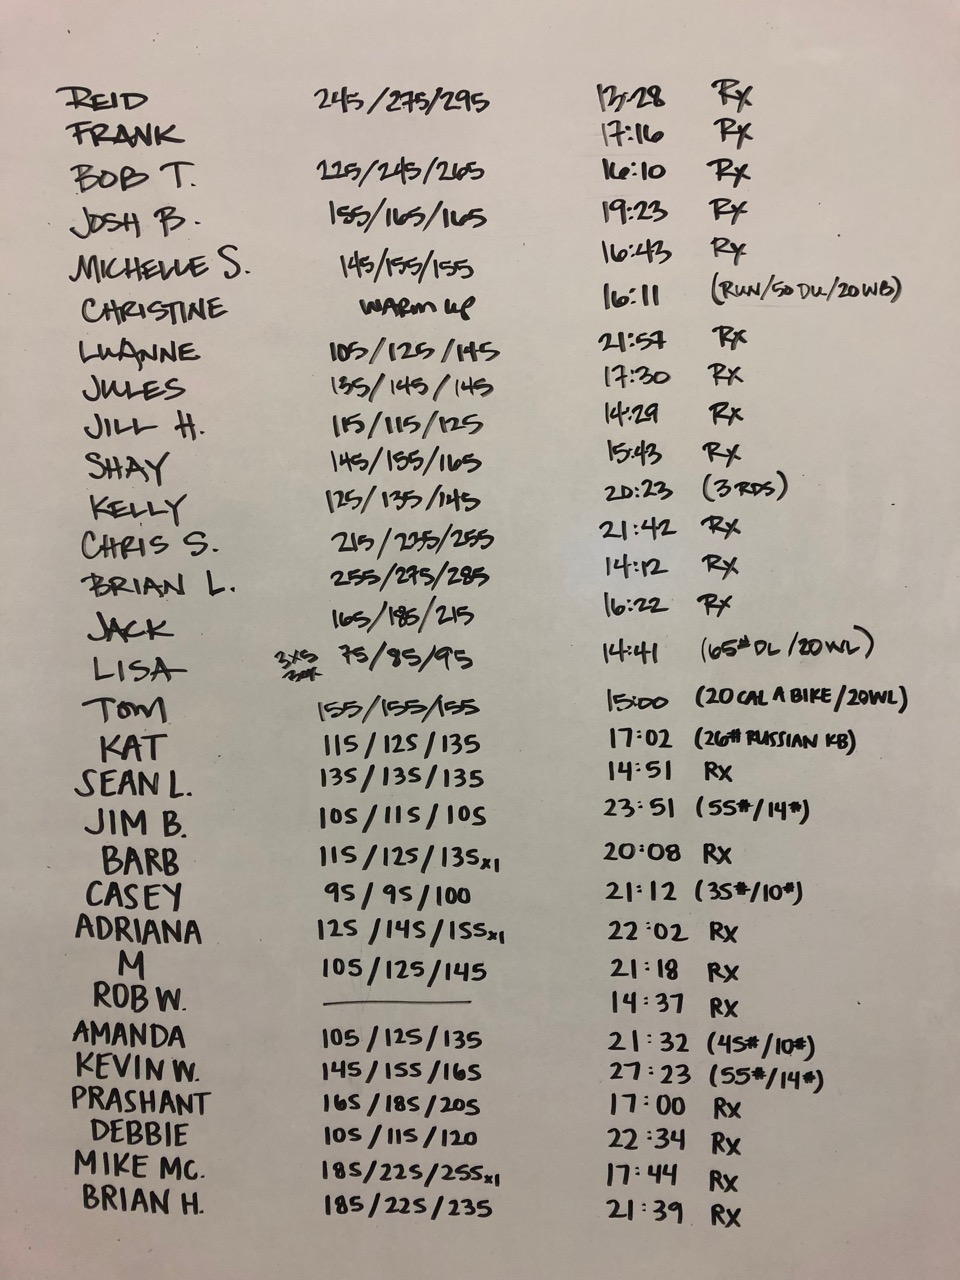 REID 245/275/295 13:28 Rx
FRANK 17:16 Rx
BOB T. 225/245/265 16:10 Rx
JOSH B. 155/165/165 19:23 Rx
MICHELLE S. 145/155/155 16:43 Rx
CHRISTINE WARM UP 16:11 (RUN/50 DU/20WB)
LUANNE 105/125/145 21:57 Rx
JULES 135/145/145 17:30 Rx
JILL H. 115/115/125 14:29 Rx
SHAY 145/155/165 15:43 Rx
KELLY 125/135/145 20:23 (3 RDS)
CHRIS S. 215/235/255 21:42 Rx
BRIAN L. 255/275/285 14:12 Rx
JACK 165/185/215 16:22 Rx
LISA 3x5 75/85/95 14:41 (65# DL/20WL)
TOM 155/155/155 15:00 (20 CAL A BIKE/20WL)
KAT 115/125/135 17:02 (26# RUSSIAN KB)
SEAN L. 135/135/135 14:51 Rx
JIM B. 105/115/105 23:51 (55#/14#)
BARB 115/125/135x1 20:08 Rx
CASEY 95/95/100 21:12 (35#/10#)
ADRIANA 125/145/155x1 22:02 Rx
M 105/125/145 21:18 Rx
ROB W. 14:37 Rx
AMANDA 105/125/135 21:32 (45#/10#)
KEVIN W. 145/155/165 27:23 (55#/14#)
PRASHANT 165/185/205 17:00 Rx
DEBBIE 105/115/120 22:34 Rx
MIKE MC. 185/225/255x1 17:44 Rx
BRIAN H. 185/225/235 21:39 Rx